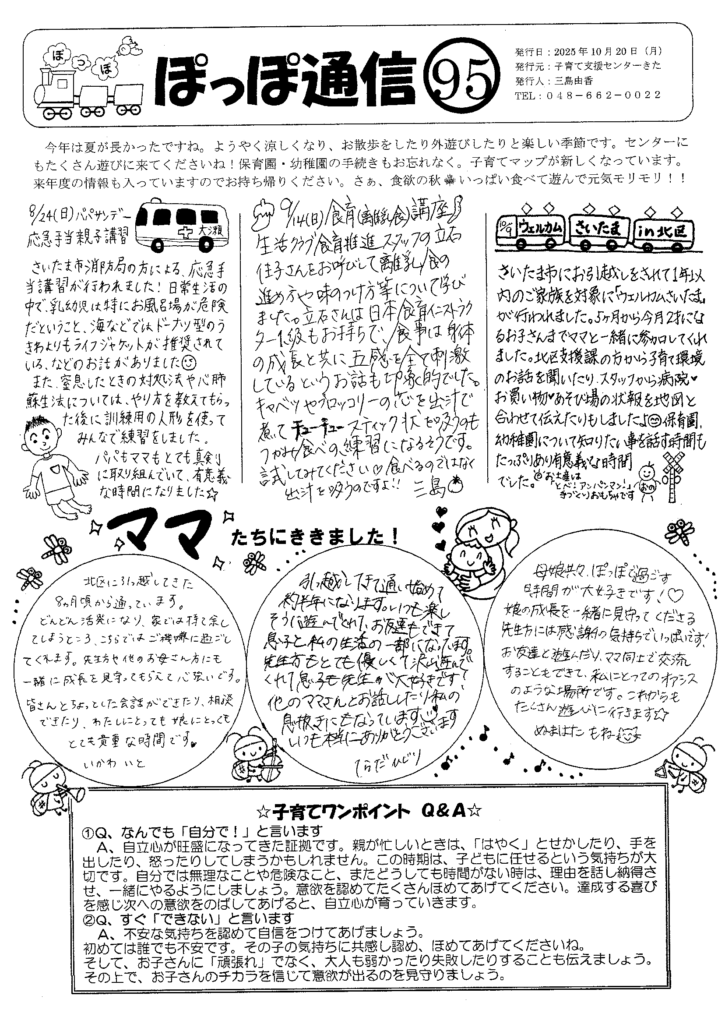 ぽっぽ
ぽっぽ通信 95
発行日：2025年10月20日（月）
発行元：子育て支援センターきた
発行人：三島由香
TEL：048-662-0022
今年は夏が長かったですね。ようやく涼しくなり、お散歩をしたり外遊びしたりと楽しい季節です。センターに
もたくさん遊びに来てくださいね！保育園・幼稚園の手続きもお忘れなく。子育てマップが新しくなっています。
来年度の情報も入っていますのでお持ち帰りください。さぁ、食欲の秋いっぱい食べて遊んで元気モリモリ！！
9/24(日)パパサンデー
応急手当親子講習
さいたま市消防局の方による、応急手
当講習が行われました！日常生活の
中で、乳幼児は特にお風呂場が危険
だということ、海などではドーナツ型のう
きわよりもライフジャケットが推奨されて
いる、などのお話がありました
また、窒息したときの対処法や心肺
蘇生法については、やり方を教えてもら
った後に訓練用の人形を使って
みんなで練習をしました。
パパもママもとても真剣
に取り組んでいて、有意義
な時間になりました☆
9/14(日)食育(離乳食)講座
生活クラブ食育推進スタッフの立石
佳子さんをお呼びして離乳食の
進め方や味のつけ方等について学び
ました。立石さんは日本食育インストラク
ター1級もお持ちで、食事は身体
の成長と共に五感を全て刺激
しているというお話も印象的でした。
キャベツやブロッコリーの芯を出汁で
煮てチューチュースティック状を吸うのも
つかみ食べの練習になるそうです。
試してみてください♡食べるのではなく
出汁を吸うのですよ!! 三島
10/9 ウェルカム さいたま in北区
さいたま市にお引越しをされて1年以
内のご家族を対象に「ウェルカムさいたま」
が行われました。5ヶ月から今月2才にな
るお子さんまでママと一緒に参加してくれ
ました。北区支援課の方から子育て環境
のお話を聞いたり、スタッフから病院♥
お買い物♥あそび場の状報を地図と
合わせて伝えたりもしましたよ 保育園、
幼稚園について知りたい事を話す時間も
たっぷりあり有意義な時間
でした。
お土産は
とべ！アンパンマン！
手づくりおもちゃです
ママたちにききました！
北区に引っ越してきた
8ヵ月頃から通っています。
どんどん活発になり、家では持て余し
てしまうところ、こちらではご機嫌に過ごし
てくれます。先生方や他のお母さん方にも
一緒に成長を見守ってもらえて心強いです。
皆さんとちょっとした会話ができたり、相談
できたり、わたしにとっても娘にとっても
とても貴重な時間です♥
いかわ いと
引っ越してきて通い始めて
約半年になります。いつも楽し
そうに遊んでくれて、お友達もできて
息子と私の生活の一部になっています。
先生方もとても優しくて沢山遊んで
くれて息子も先生が大好きです♡
他のママさんとお話ししたり私の
息抜きにもなっています♡
いつも本当にありがとうございます
てらだひびり
母娘共々、ぽっぽで過ごす
時間が大好きです！♡
娘の成長を一緒に見守ってくださる
先生方には感謝の気持ちでいっぱいです！
お友達と遊んだり、ママ同士で交流
することもできて、私にとってのオアシス
のような場所です。これからも
たくさん遊びに行きます☆
ぬまはた もね
☆子育てワンポイント Q＆A☆
①Q、なんでも「自分で！」と言います
A、自立心が旺盛になってきた証拠です。親が忙しいときは、「はやく」とせかしたり、手を
出したり、怒ったりしてしまうかもしれません。この時期は、子どもに任せるという気持ちが大
切です。自分では無理なことや危険なこと、またどうしても時間がない時は、理由を話し納得さ
せ、一緒にやるようにしましょう。意欲を認めてたくさんほめてあげてください。達成する喜び
を感じ次への意欲をのばしてあげると、自立心が育っていきます。
②Q、すぐ「できない」と言います
A、不安な気持ちを認めて自信をつけてあげましょう。
初めては誰でも不安です。その子の気持ちに共感し認め、ほめてあげてくださいね。
そして、お子さんに「頑張れ」でなく、大人も弱かったり失敗したりすることも伝えましょう。
その上で、お子さんのチカラを信じて意欲が出るのを見守りましょう。